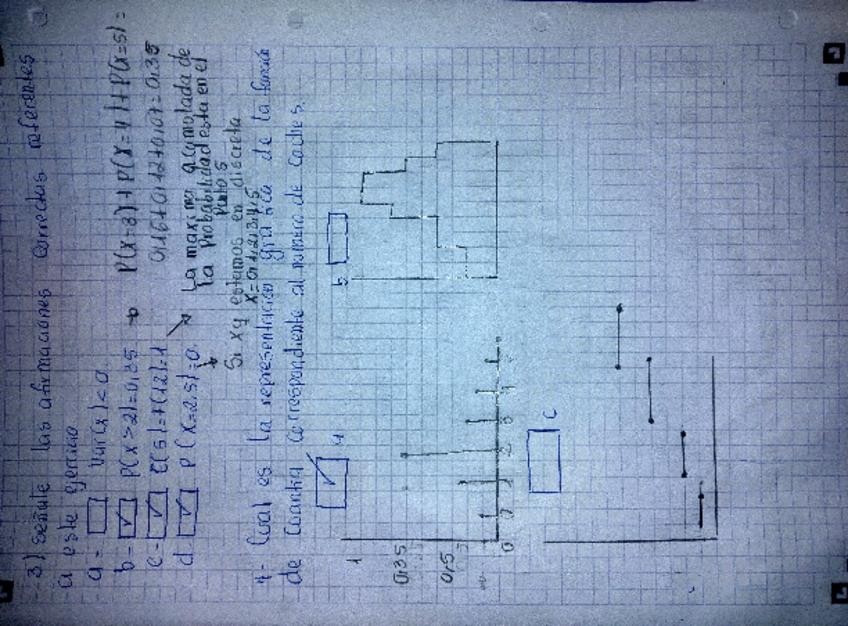 3) Señale las afirmaciones correctas referentes
a este ejercicio
a = Var(x) < 0
b = P(X>2) = 0,35 → P(X=3)+P(X=4)+P(X=5) =
0,16+0,12+0,07 = 0,35
c = F(5) = F(12) = 1
La maxima acomolada de
la probabilidad esta en el
punto 5
d P(X=2,5) = 0
Si xy estamos en discreta
x = 0,1,2,3,4,5
4- Cual es la representación gráfica de la función
de cuantia correspondiente al número de coches.
a
b
1
0,35
0,5
0 1 2 3
c